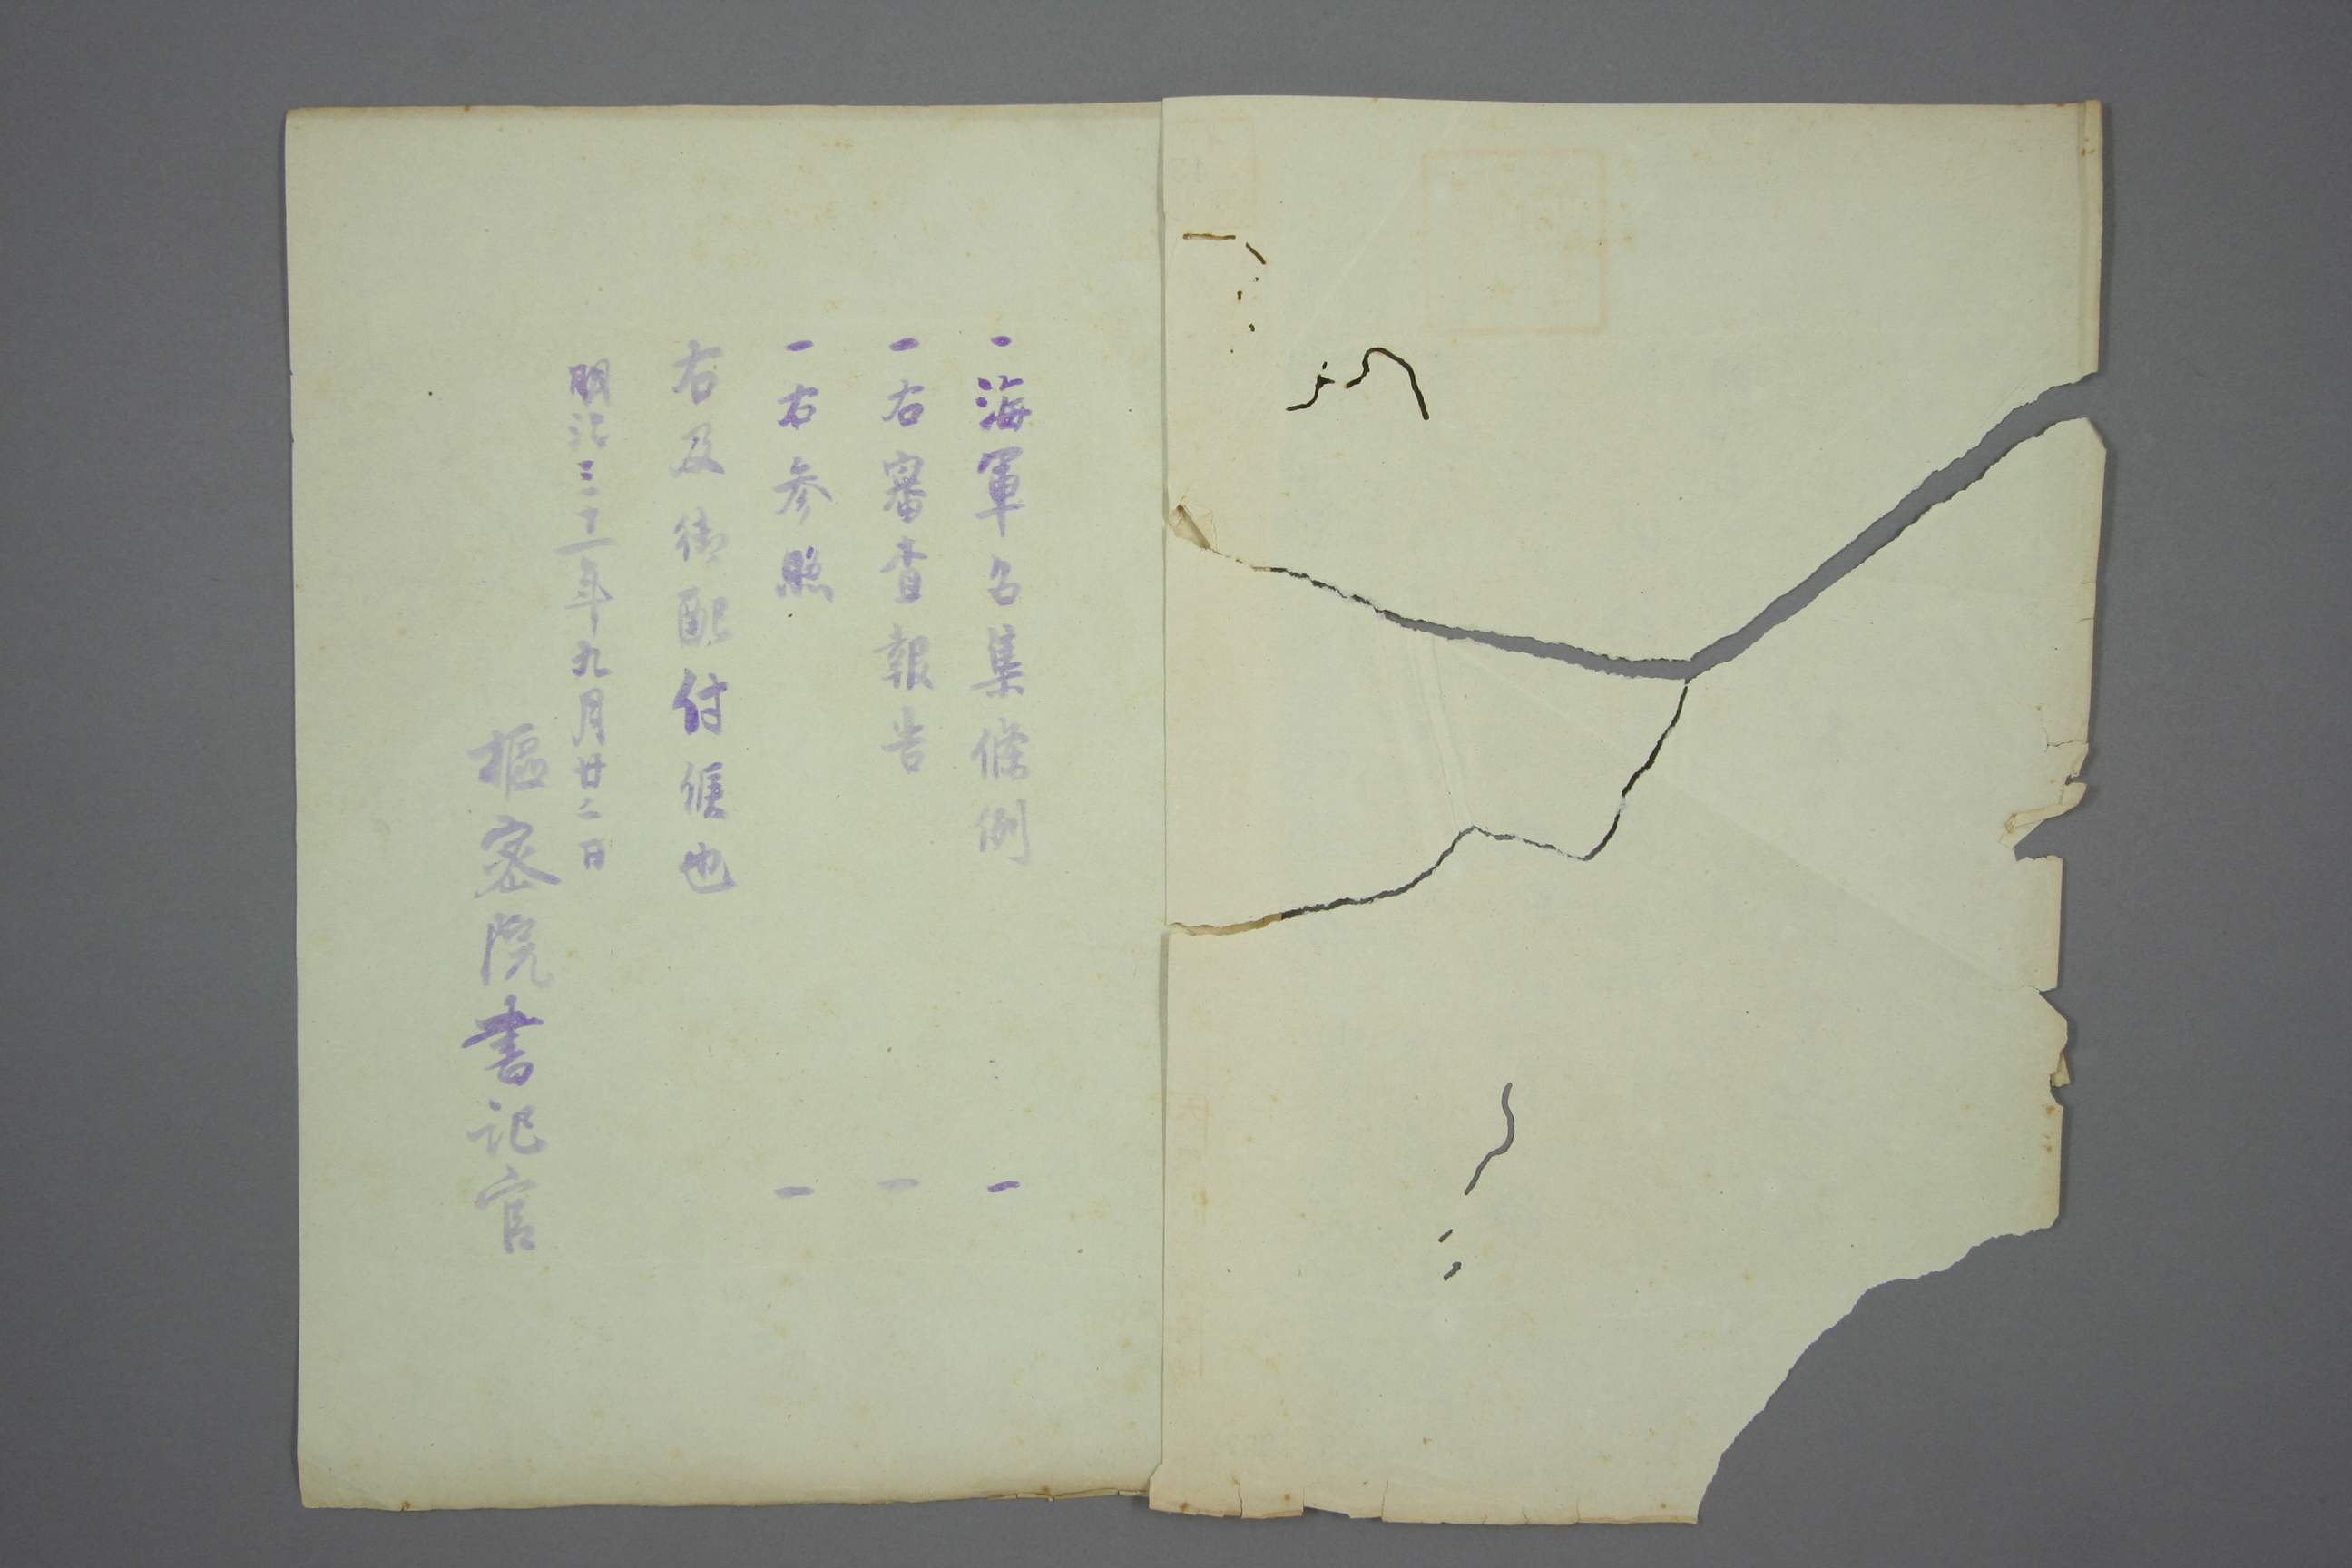 一海軍召集條例 一
一右審査報告 一
一右参照 一
右及御配付候也
明治三十一年九月廿二日
樞密院書記官